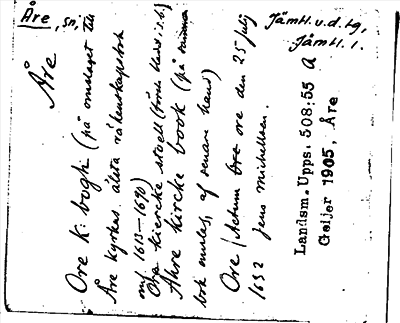 Åre, sn,
Jämtl. v. d. tg,
Jämtl. l.
Åre
Ore K: bogh (på omslaget till
Åre kyrkas älsta räkenskapsbok
omf. 1615–1690)
Ore kiercke stoell (förut
Ahre kircke book (på samma
bok omslag, af senare hand)
Ore (Actum ore den 25 julj
1652 Jens Michellsen.
Landsm. Upps. 508:55 A
Geijer 1905, Åre